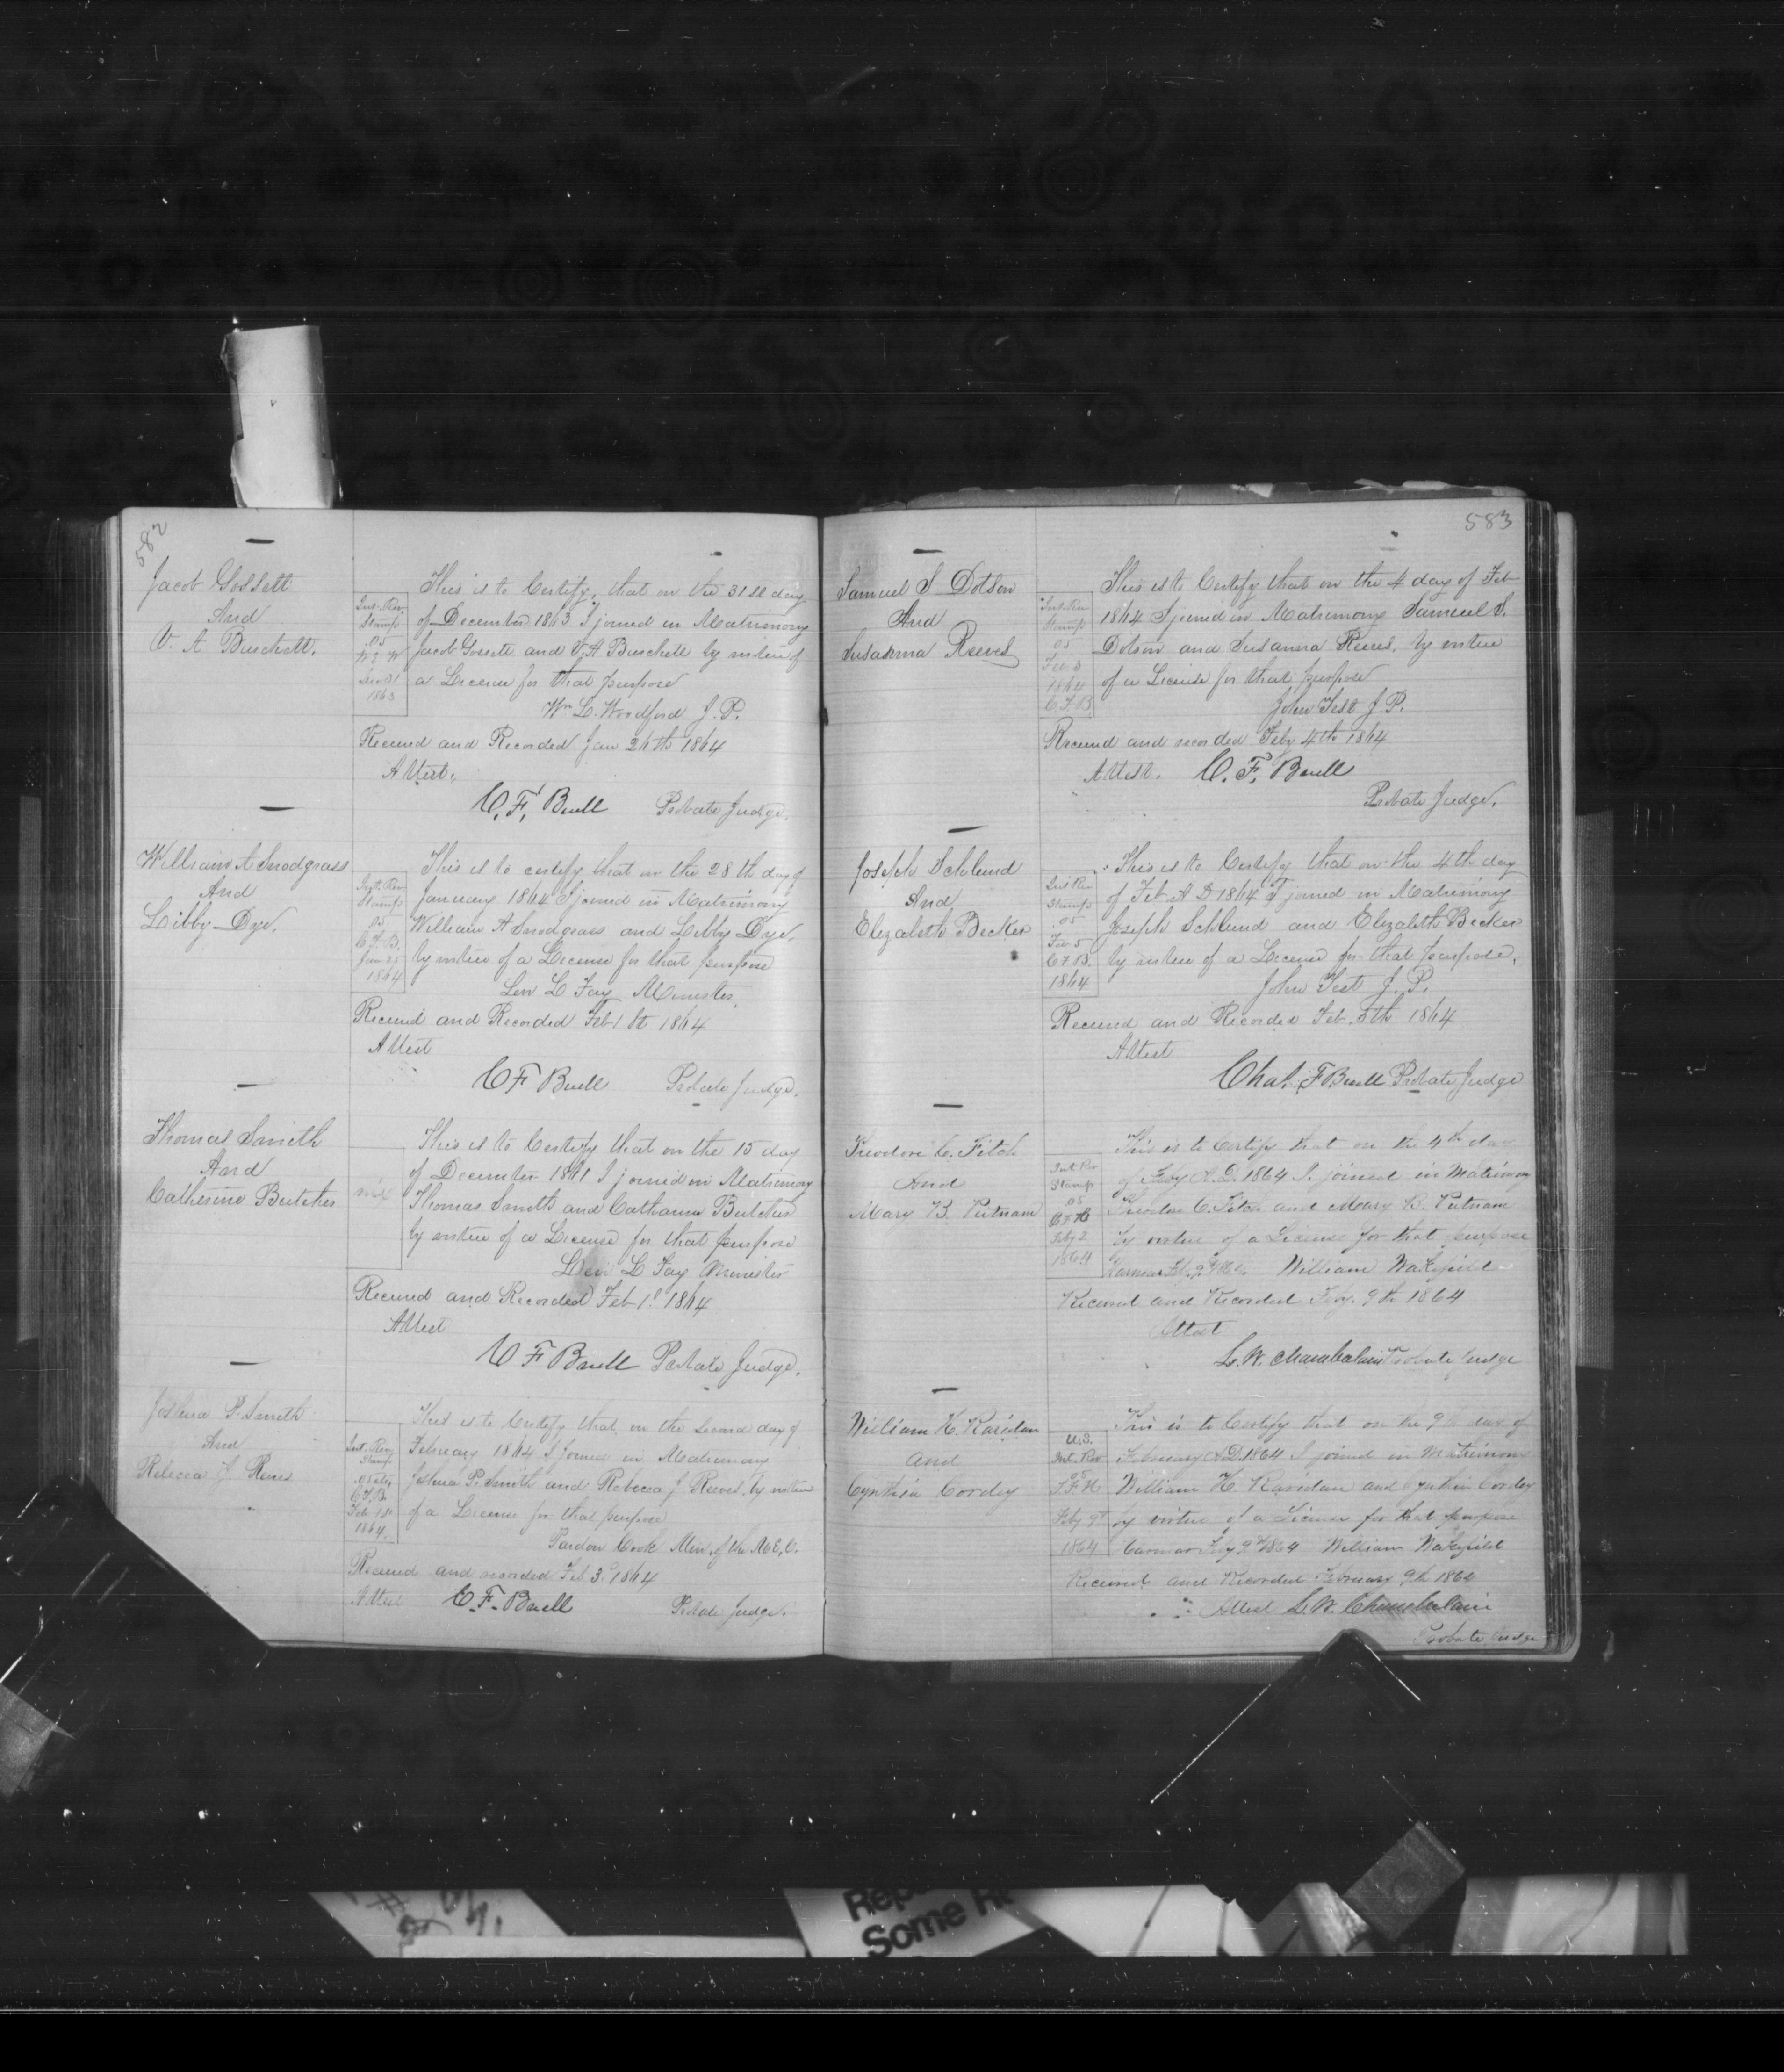 582
Jacob Gossett
And
V. A Burchett.
Int. Rev.
Stamp
.05
Dec 31
1863
This is to Certify, that on the 31st day
of December 1863 I joined in Matrimony
Jacob Gossett and V. A Burchett by virtue of
a License for that purpose
Wm L. Woodford J. P.
Received and Recorded Jan 26th 1864
Attest.
C. F. Buell Probate Judge.
William A Snodgrass
And
Libby Dye.
Int. Rev.
Stamp
.05
C. F. B.
Jan 25
1864
This is to certify that on the 28th day of
January 1864 I joined in Matrimony
William A Snodgrass and Libby Dye.
by virtue of a License for that purpose
Levi L Fay Minister.
Received and Recorded Feb 1st 1864
Attest
C F Buell Probate Judge.
Thomas Smith
And
Catherine Butcher
This is to Certify that on the 15 day
of December 1861 I joined in Matrimony
Thomas Smith and Catharine Butcher
by virtue of a License for that purpose
Levi L Fay Minister
Received and Recorded Feb 1st 1864
Attest
C F Buell Probate Judge.
Joshua P. Smith
And
Rebecca J. Reeves
Int. Rev
Stamp
C.F.B.
Feb 1st
1864
This is to Certify that on the Second day of
February 1864 I joined in Matrimony
Joshua P. Smith and Rebecca J Reeves. by virtue
of a License for that purpose
Pardon Cook Min. of the M.E.C.
Received and recorded Feb 3d 1864
Attest C. F. Buell Probate Judge.
583
Samuel S Dotson
And
Susanna Reeves
Int. Rev
Stamp
05
Feb 3
1864
C. F. B.
This is to Certify that on the 4 day of Feb
1864 I joined in Matrimony Samuel S.
Dotson and Susanna Reeves, by virtue
of a License for that purpose
John Test J. P.
Received and recorded Feby 4th 1864
Attest. C. F. Buell
Probate Judge.
Joseph Schlund
And
Elizabeth Becker
Int Rev
Stamp
.05
Feb 5
C.F.B.
1864
This is to Certify that on the 4th day
of Feb A D 1864 I joined in Matrimony
Joseph Schlund and Elizabeth Becker
by virtue of a License for that purpose.
John Test J. P.
Received and Recorded Feb. 5th 1864
Attest
Chas. F Buell Probate Judge
Theodore C. Fitch
And
Mary B. Putnam
Int Rev
Stamp
.05
Feby 2
1864
This is to Certify that on the 4th day
of Feby A. D. 1864 I joined in Matrimony
Theodore C. Fitch and Mary B. Putnam
by virtue of a License for that purpose
Harmar Feb. 9th 1864. William Wakefield
Received and Recorded Feby. 9th 1864
Attest
L. W. Chamberlain Probate Judge
William H. Raridan
And
Cynthia Cordey
U.S.
Int. Rev
05
Feby 9th
1864
This is to Certify that on the 9th day of
February A.D. 1864 I joined in Matrimony
William H. Raridan and Cynthia Cordey
by virtue of a License for that purpose
Harmar Feby 9th 1864 William Wakefield
Received and Recorded February 9th 1864
Attest L. W. Chamberlain
Probate Judge
Some